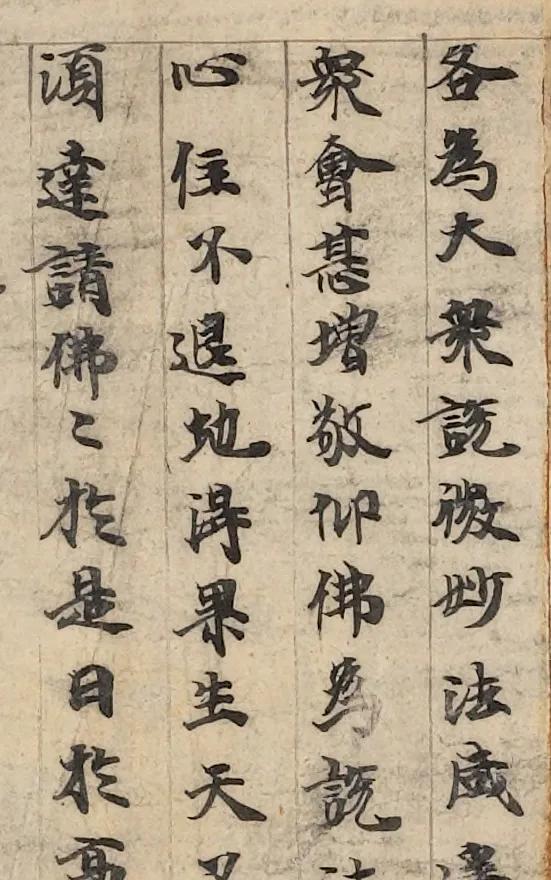 各為大衆説微妙法咸
衆會甚增敬仰佛為説法
心住不退地得果生天
須達請佛〻於是日於高